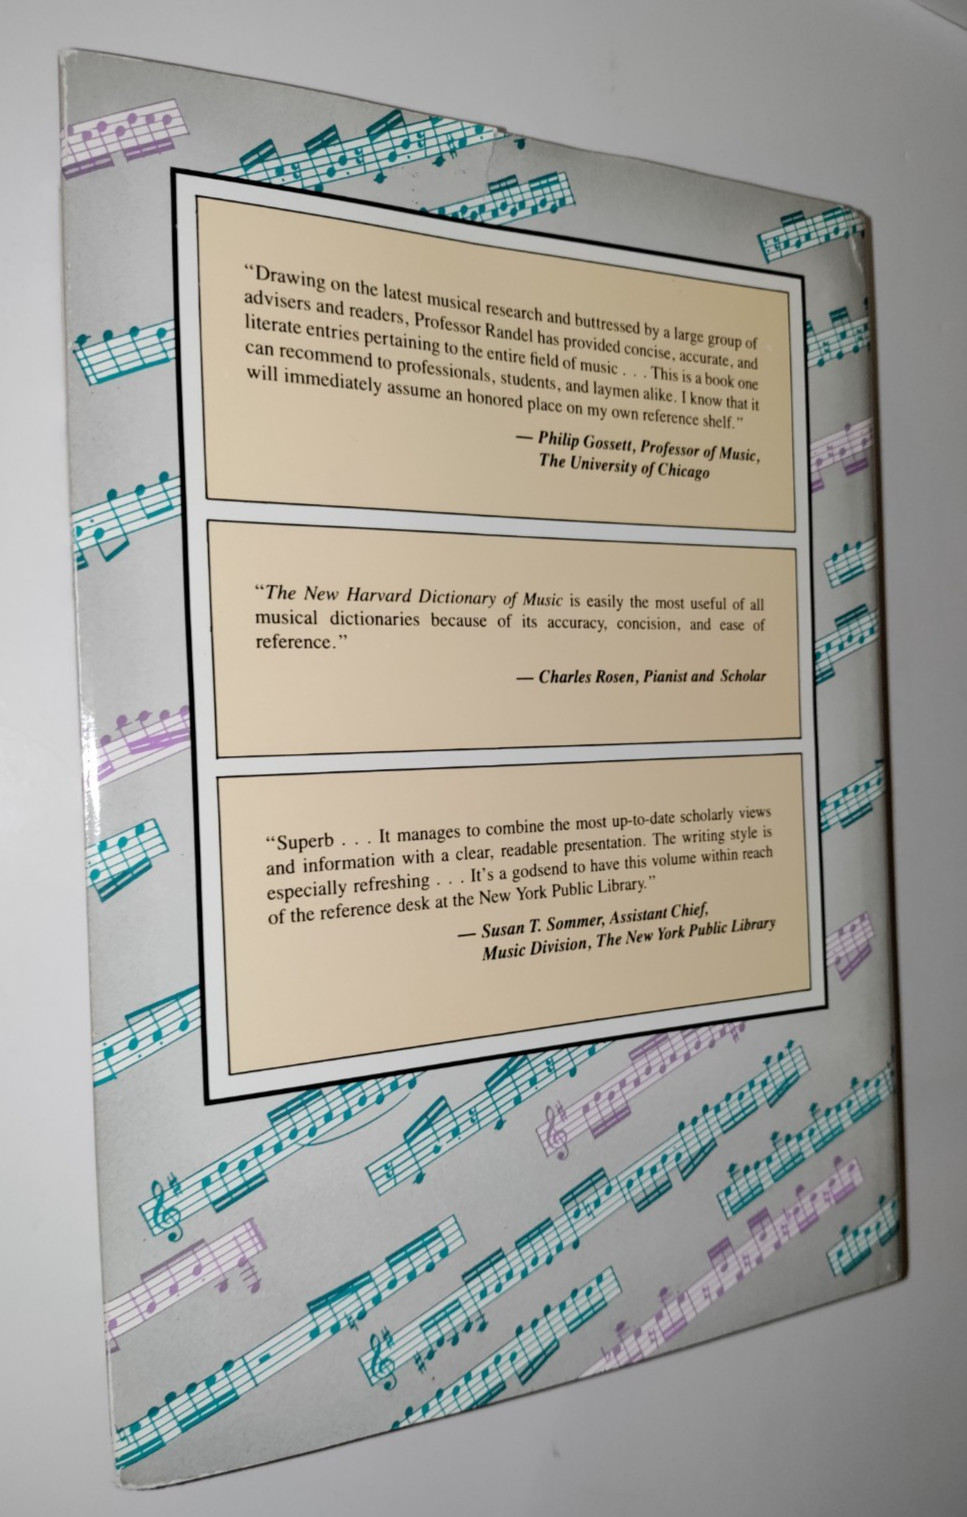 “Drawing on the latest musical research and buttressed by a large group of
advisers and readers, Professor Randel has provided concise, accurate, and
literate entries pertaining to the entire field of music . . . This is a book one
can recommend to professionals, students, and laymen alike. I know that it
will immediately assume an honored place on my own reference shelf.”
— Philip Gossett, Professor of Music,
The University of Chicago
“The New Harvard Dictionary of Music is easily the most useful of all
musical dictionaries because of its accuracy, concision, and ease of
reference.”
— Charles Rosen, Pianist and Scholar
“Superb . . . It manages to combine the most up-to-date scholarly views
and information with a clear, readable presentation. The writing style is
especially refreshing . . . It’s a godsend to have this volume within reach
of the reference desk at the New York Public Library.”
— Susan T. Sommer, Assistant Chief,
Music Division, The New York Public Library